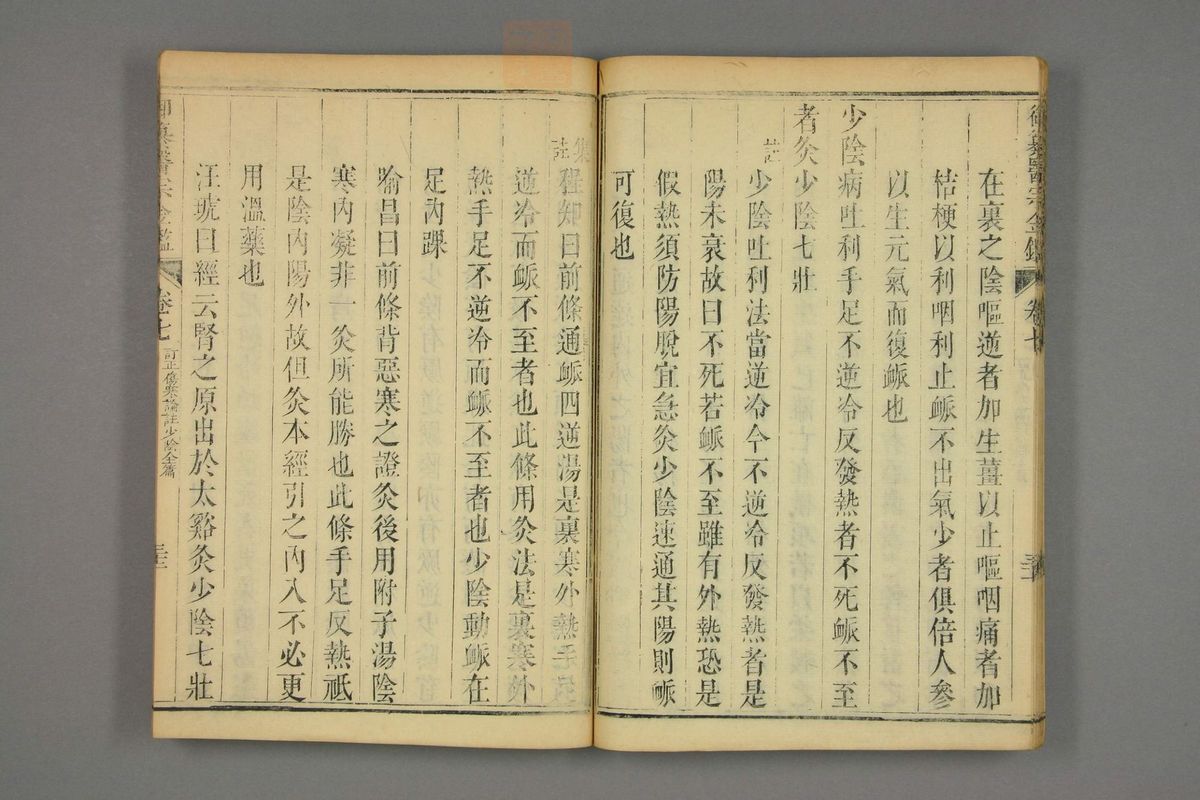 御纂醫宗金鑑 卷七
在裏之陰嘔逆者加生薑以止嘔咽痛者加
桔梗以利咽利止脈不出氣少者俱倍人參
以生元氣而復脈也
少陰病吐利手足不逆冷反發熱者不死脈不至
者灸少陰七壯
註
少陰吐利法當逆冷今不逆冷反發熱者是
陽未衰故曰不死若脈不至雖有外熱恐是
假熱須防陽脫宜急灸少陰速通其陽則脈
可復也
集註
程知曰前條通脈四逆湯是裏寒外熱手足
逆冷而脈不至者也此條用灸法是裏寒外
熱手足不逆冷而脈不至者也少陰動脈在
足內踝
喻昌曰前條背惡寒之證灸後用附子湯陰
寒內凝非一灸所能勝也此條手足反熱祇
是陰內陽外故但灸本經引之內入不必更
用溫藥也
汪琥曰經云腎之原出於太谿灸少陰七壯
御纂醫宗金鑑 卷七 訂正傷寒論註少陰全篇